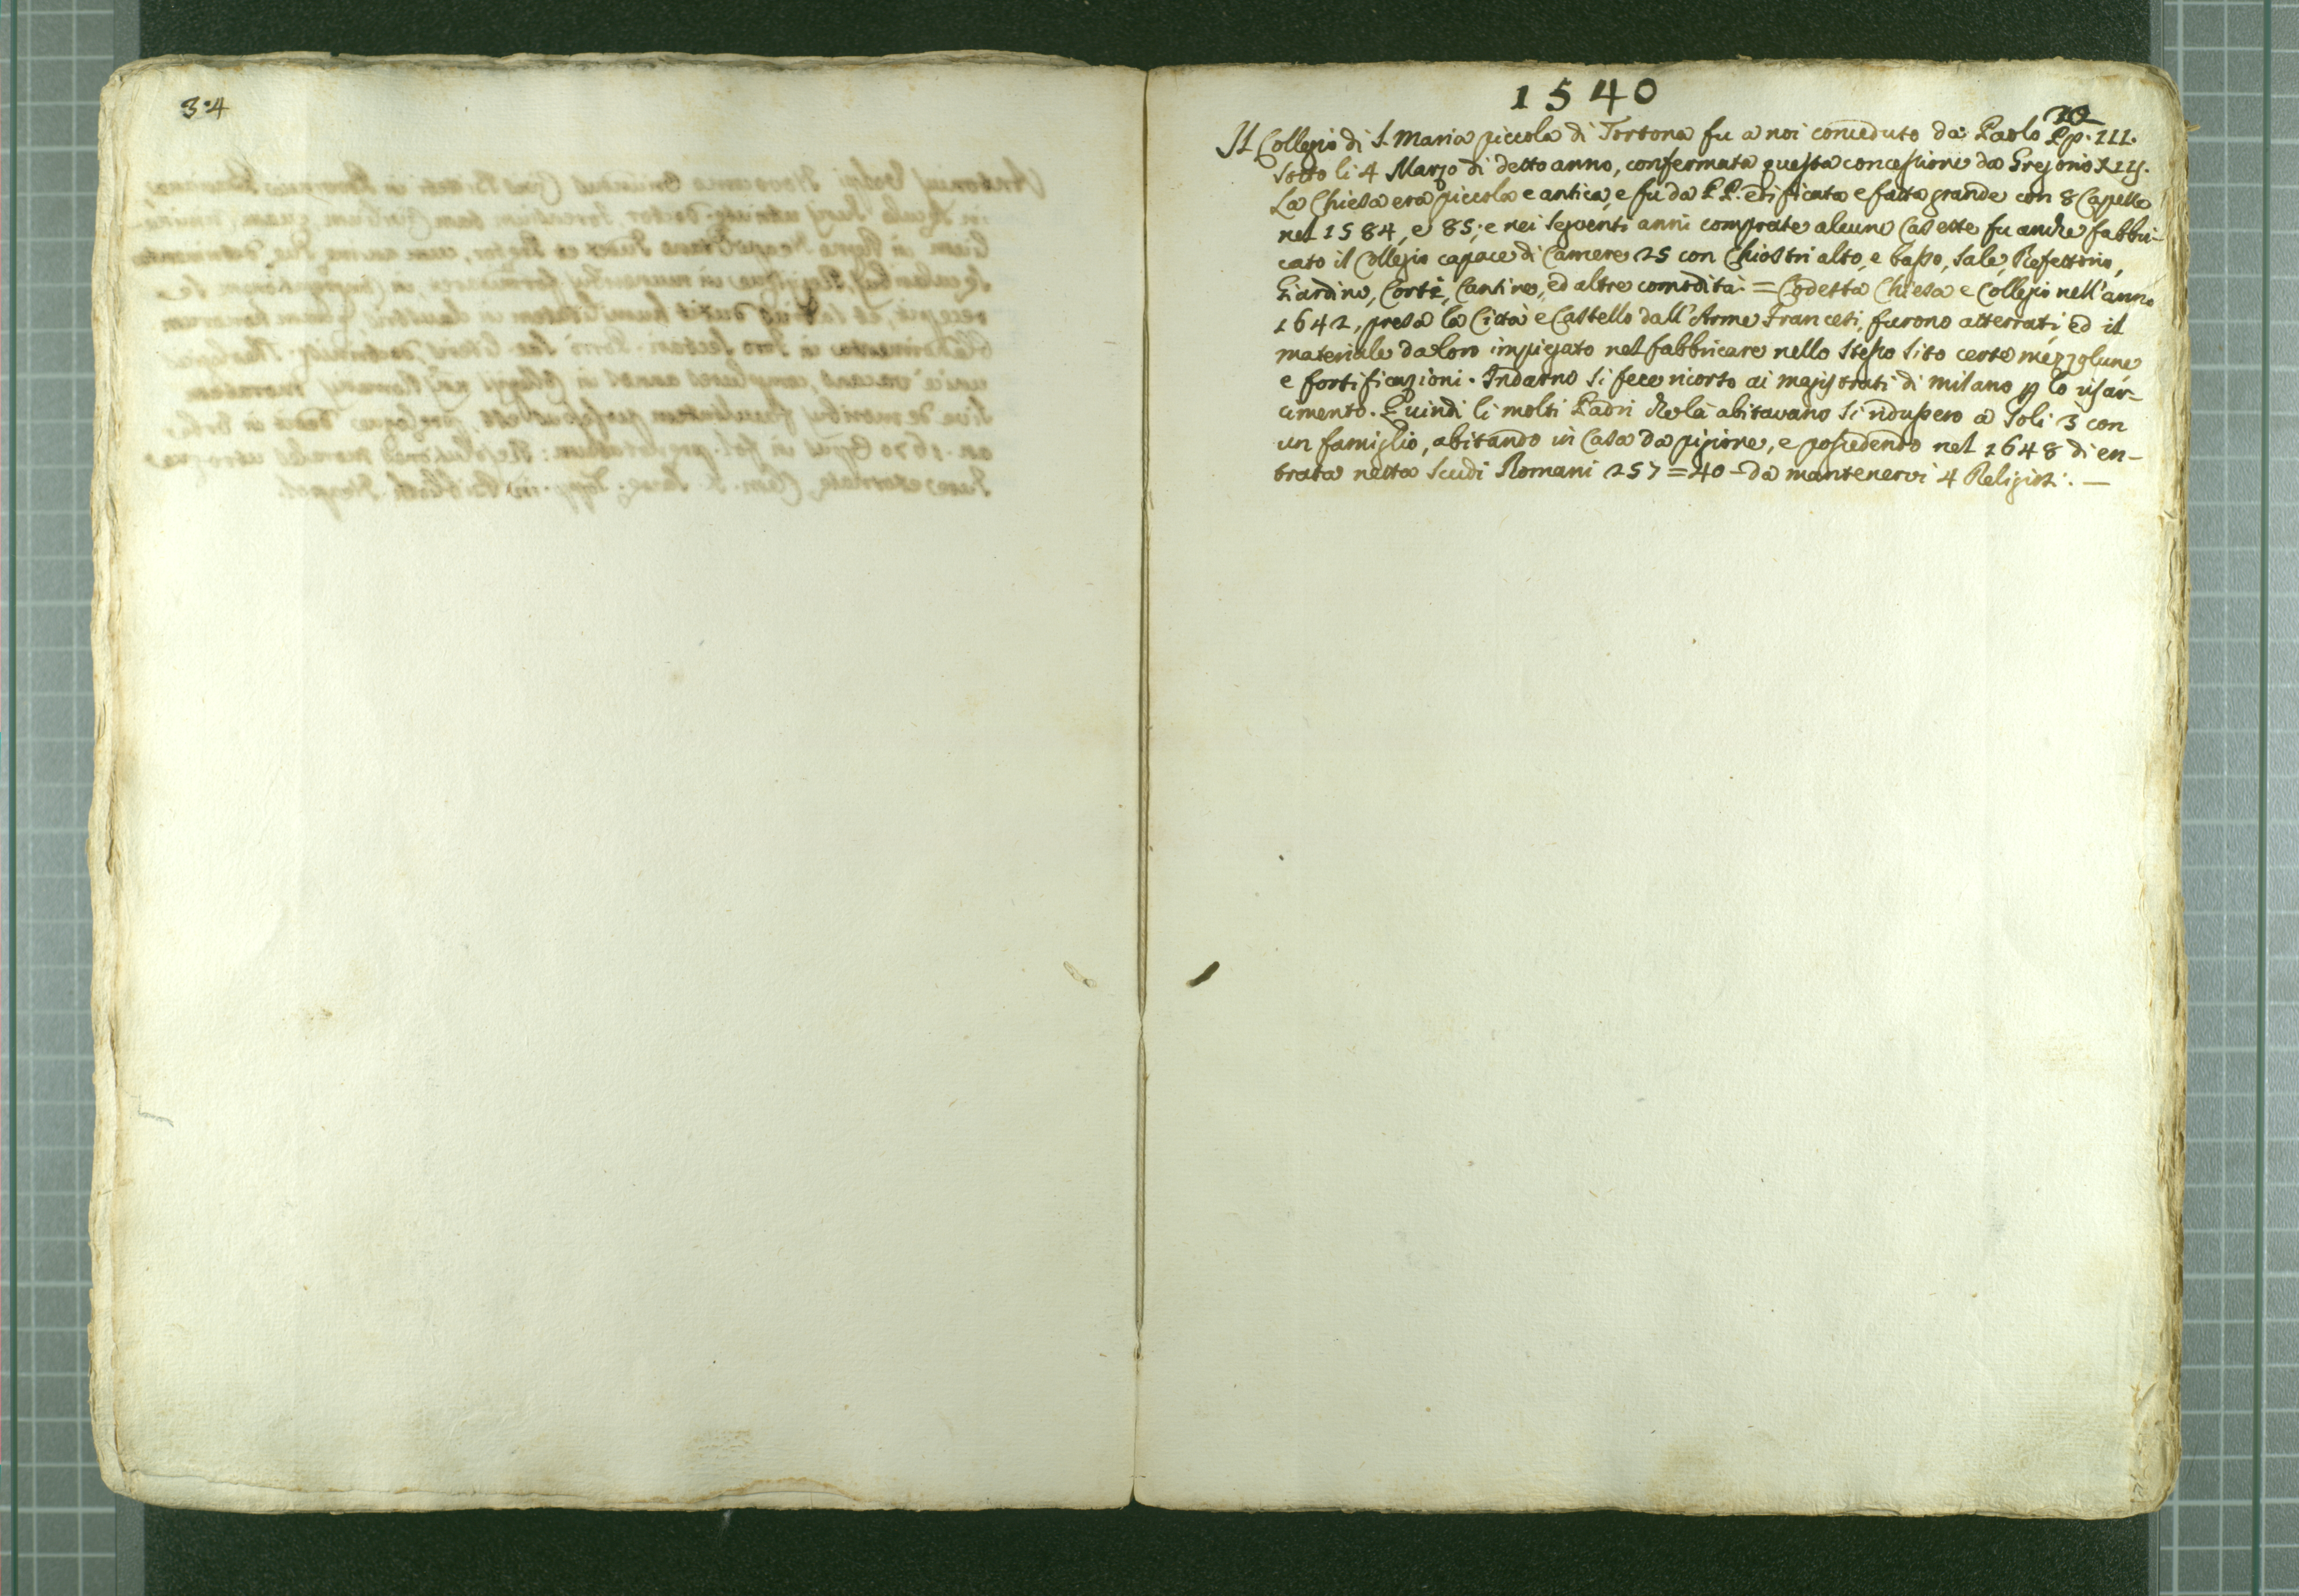 34
1540
10
Il Collegio di S. Maria piccola di Tortona fu a noi conceduto da Paolo Pp. III.
sotto li 4 Marzo di detto anno, confermata questa concessione da Gregorio XIII.
La Chiesa era piccola e antica, e fu da PP. edificata e fatta grande con 8 Capelle
nel 1584, e 85; e nei seguenti anni comprate alcune Casette fu anche fabbri-
cato il Collegio capace di Camere 25 con Chiostri alto, e basso, Sale, Refettorio,
Giardino, Corte, Cantine, ed altre comodità. = Codesta Chiesa e Collegio nell'anno
1642, presa la Città e Castello dall'Arme Francesi, furono atterrati ed il
materiale da loro impiegato nel fabbricare nello stesso sito certe mezzolune
e fortificazioni. Indarno si fece ricorso ai magistrati di Milano p lo risar-
cimento. Quindi li molti Padri che là abitavano si ridussero a soli 3 con
un famiglio, abitando in Casa da pigione, e possedendo nel 1648 di en-
trata netta Scudi Romani 257 = 40 - da mantenervi 4 Religiosi. —